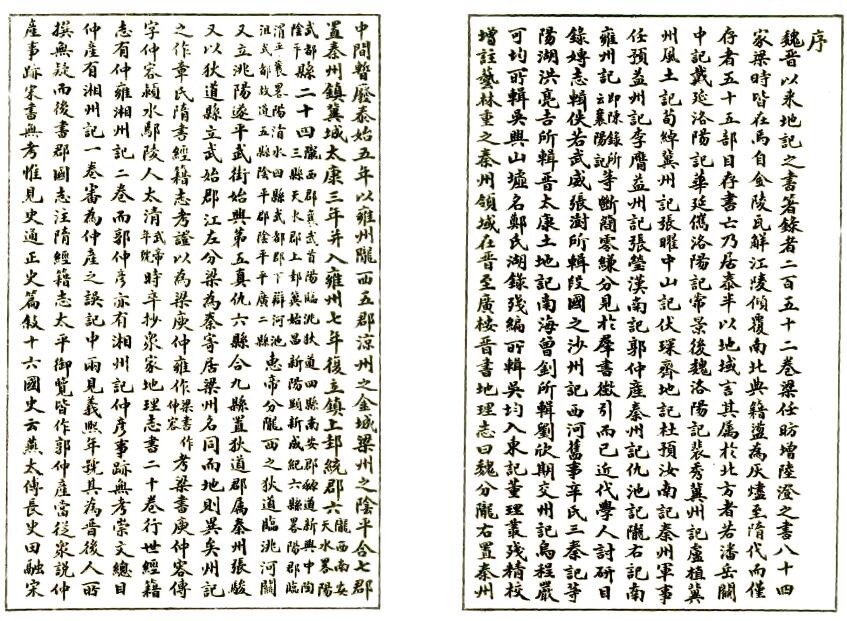 序
魏晉以來地記之書著錄者二百五十二卷梁任昉增陸澄之書八十四
家梁時皆在焉自金陵瓦解江陵傾覆南北典籍盪為灰燼至隋代而僅
存者五十五部目存書亡乃居泰半以地域言其屬於北方者若潘岳關
中記戴延洛陽記華延儁洛陽記常景後魏洛陽記裴秀冀州記盧植冀
州風土記荀綽冀州記張曜中山記伏琛齊地記杜預汝南記秦州軍事
任預益州記李膺益州記張瑩漢南記郭仲產秦州記仇池記隴右記南
雍州記即陳錄所云襄陽記等斷簡零縑分見於羣書徵引而已近代學人討研目
錄摶志輯佚若武威張澍所輯段國之沙州記西河舊事辛氏三秦記等
陽湖洪亮吉所輯晉太康土地記南海曾釗所輯劉欣期交州記烏程嚴
可均所輯吳興山墟名鄭氏湖錄殘編所輯吳均入東記董理叢殘精校
增註藝林重之秦州領域在晉至廣按晉書地理志曰魏分隴右置秦州
中間暫廢泰始五年以雍州隴西五郡涼州之金城梁州之陰平合七郡
置秦州鎮冀城太康三年并入雍州七年復立鎮上邽統郡六隴西南安天水畧陽
武都陰平縣二十四隴西郡襄武首陽臨洮狄道四縣南安郡獂道新興中陶三縣天水郡上邽冀始昌新陽顯新成紀六縣畧陽郡臨
渭平襄畧陽清水四縣武都郡下辯河池沮武都故道五縣陰平郡陰平平廣二縣惠帝分隴西之狄道臨洮河關
又立洮陽遂平武街始興第五真仇六縣合九縣置狄道郡屬秦州張駿
又以狄道縣立武始郡江左分梁為秦寄居梁州名同而地則異矣州記
之作章氏隋書經籍志考證以為梁庾仲雍作梁書作仲容考梁書庾仲容傳
字仲容潁水鄢陵人太清武帝年號時卒抄衆家地理志書二十卷行世經籍
志有仲雍湘州記二卷而郭仲彥亦有湘州記仲彥事跡無考崇文總目
仲產有湘州記一卷審為仲產之誤記中兩見義熙年號其為晉後人所
撰無疑而後書郡國志注隋經籍志太平御覽皆作郭仲產當從衆說仲
產事跡宋書無考惟見史通正史篇敘十六國史云燕太傅長史田融宋